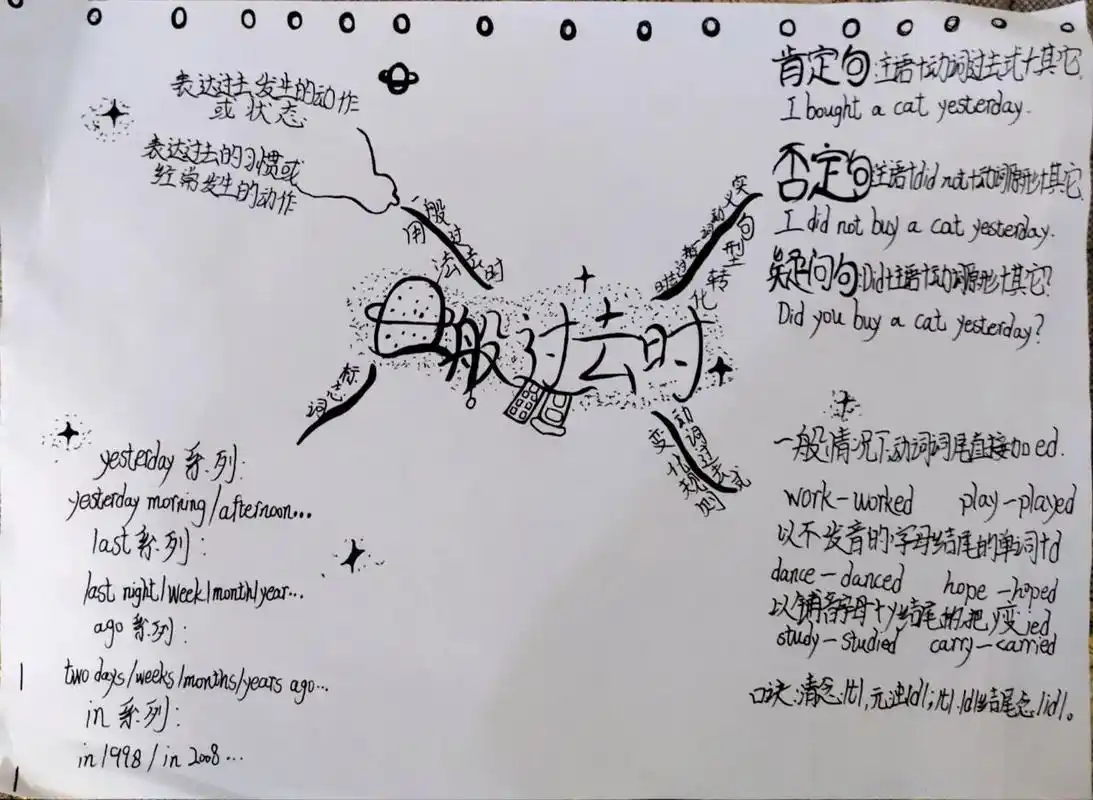 表达过去发生的动作
或状态
表达过去的习惯或
经常发生的动作
一般过去时
用法
一般过去时
实义动词一般过去时
句型转化
肯定句:主语+动词过去式+其它.
I bought a cat yesterday.
否定句:主语+did not+动词原形+其它.
I did not buy a cat yesterday.
疑问句:Did+主语+动词原形+其它?
Did you buy a cat yesterday?
标志词
yesterday 系列:
yesterday morning/afternoon...
last 系列:
last night/week/month/year...
ago 系列:
two days/weeks/months/years ago...
in 系列:
in 1998 / in 2008...
动词过去式
变化规则
一般情况下动词词尾直接加ed.
work-worked play-played
以不发音的字母结尾的单词+d
dance-danced hope-hoped
以辅音字母+y结尾的,把y变ied
study-studied carry-carried
口诀:清念/t/,元浊/d/;/t/./d/结尾念/id/。